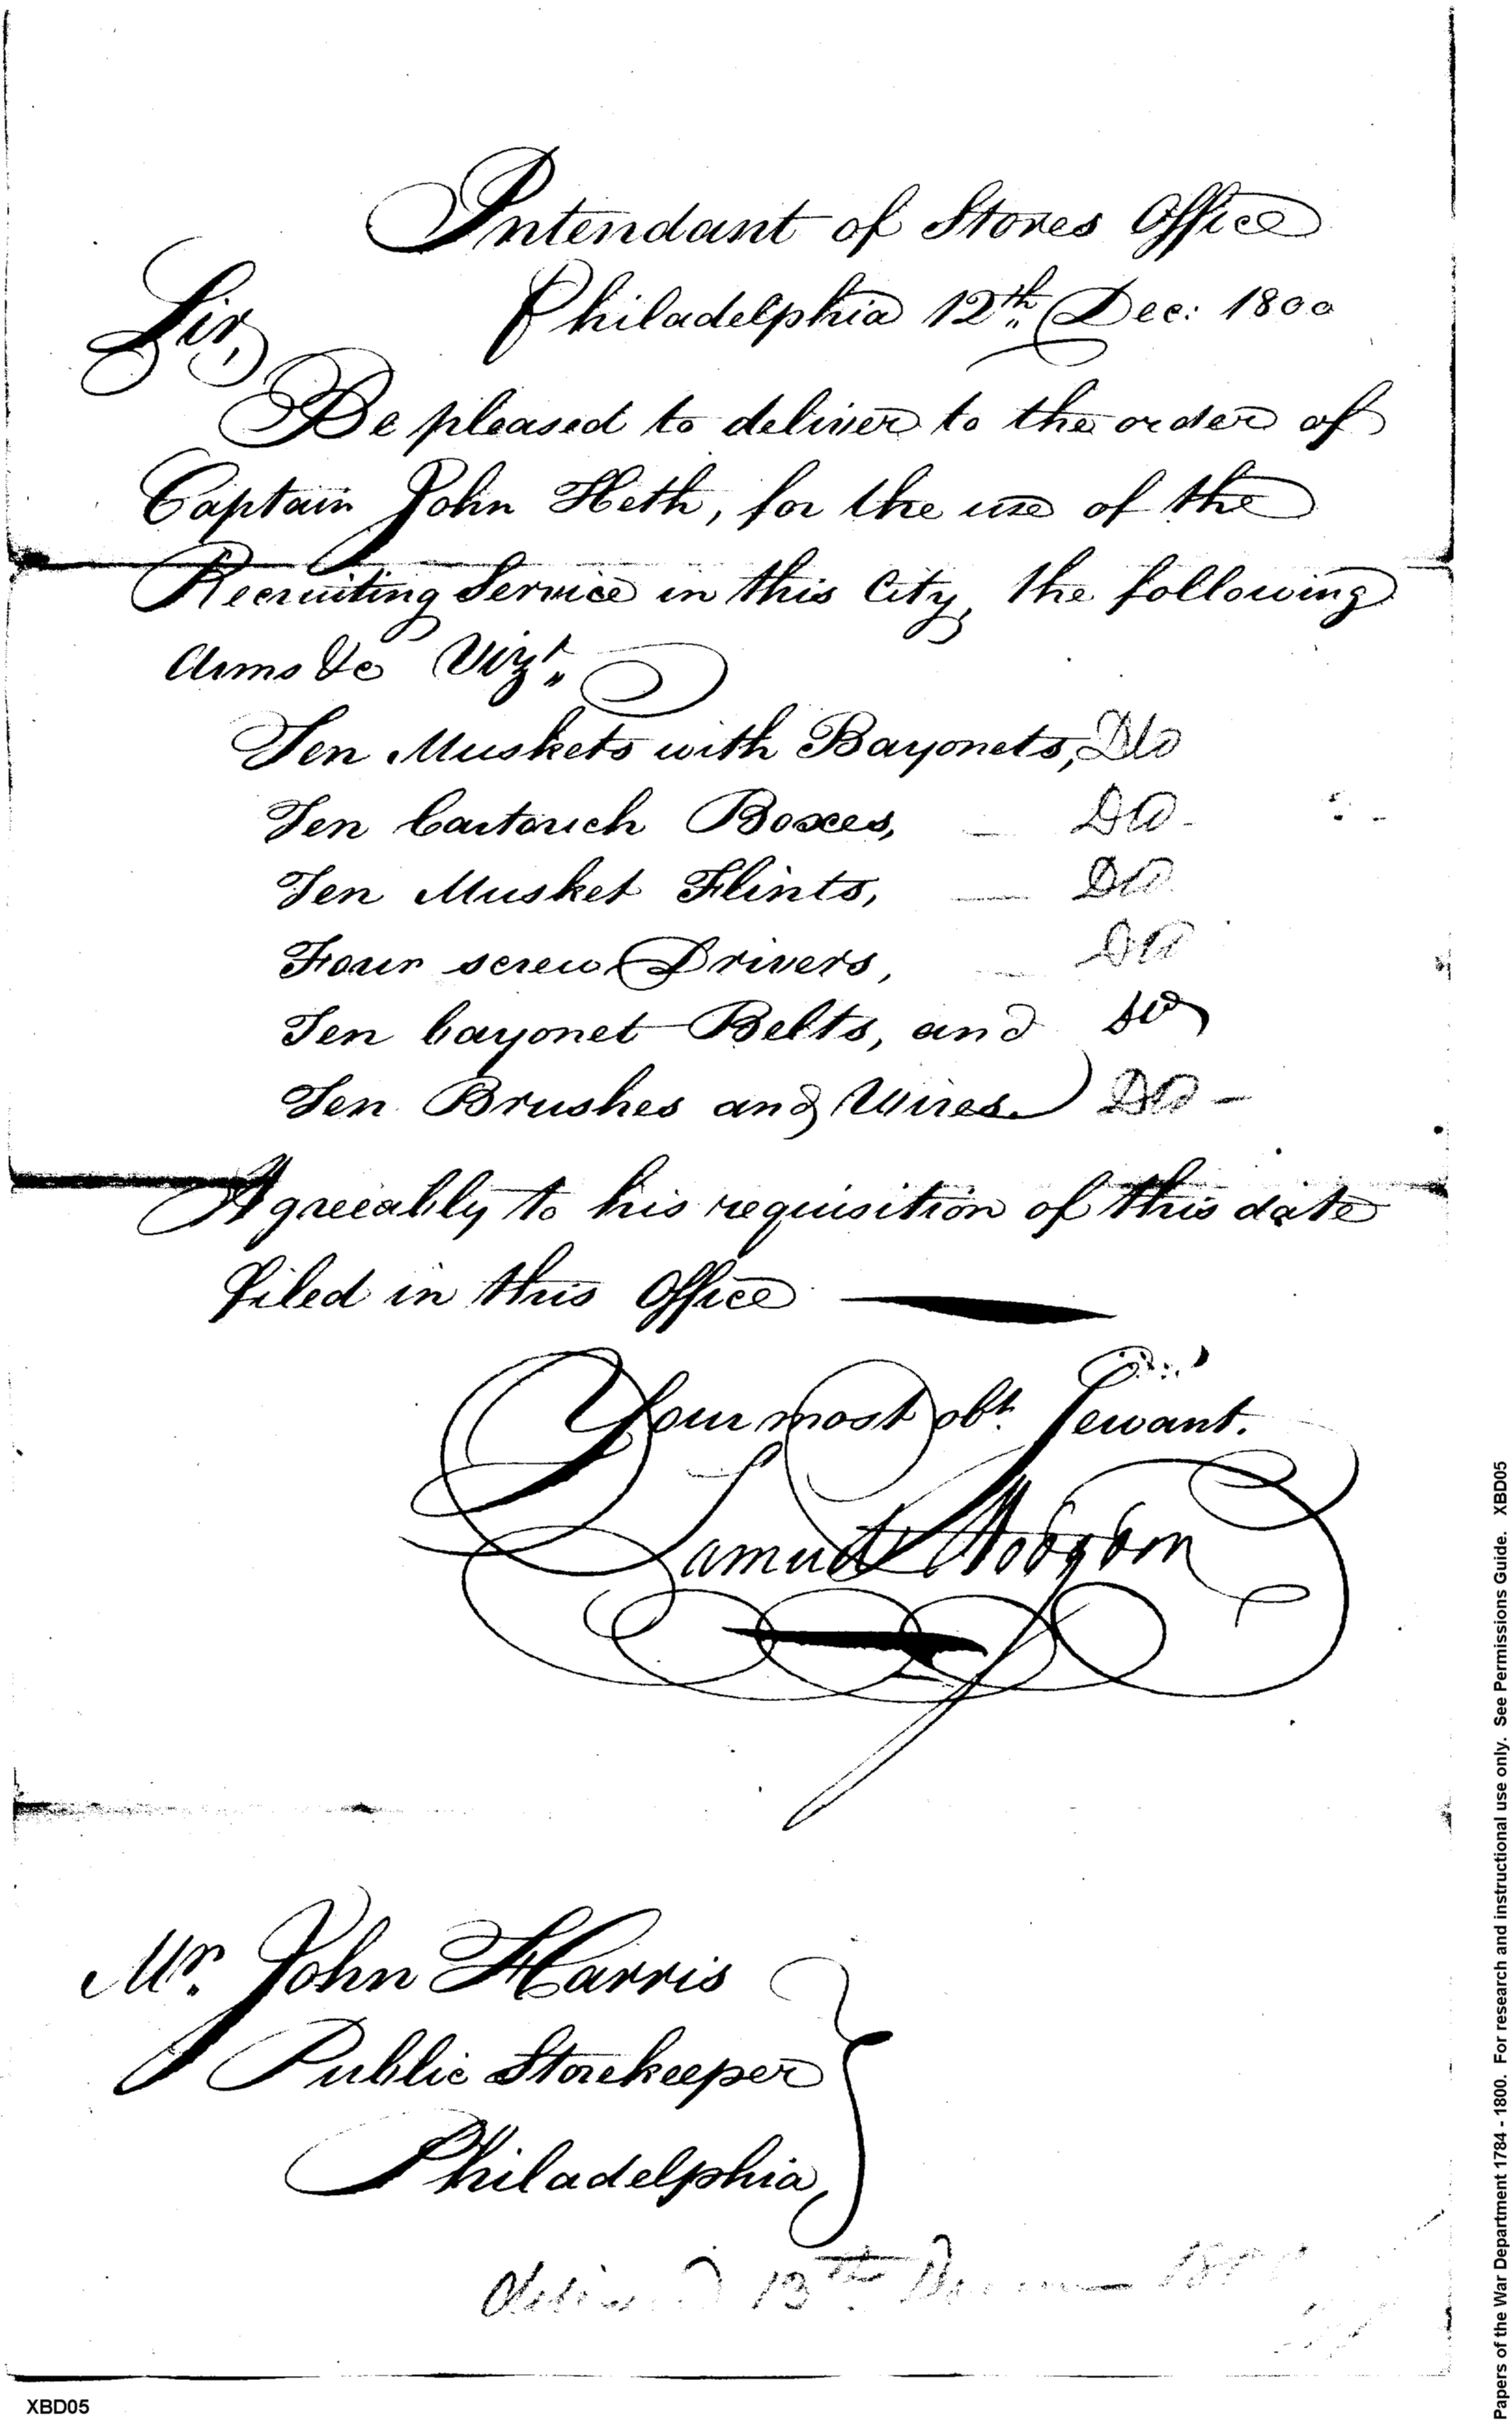 Intendant of Stores Office
Philadelphia 12th Dec: 1800
Sir,
Be pleased to deliver to the order of
Captain John Heth, for the use of the
Recruiting Service in this City, the following
Arms &c Vizt.
Ten Muskets with Bayonets,
Ten Cartouch Boxes,
Ten Musket Flints,
Four screw Drivers,
Ten bayonet Belts, and
Ten Brushes and Wires
Agreeably to his requisition of this date
filed in this Office
Your most obt. Servant.
Samuel Hodgdon
Mr. John Harris
Public Storekeeper
Philadelphia,
13th
XBD05
Papers of the War Department 1784 - 1800. For research and instructional use only. See Permissions Guide. XBD05